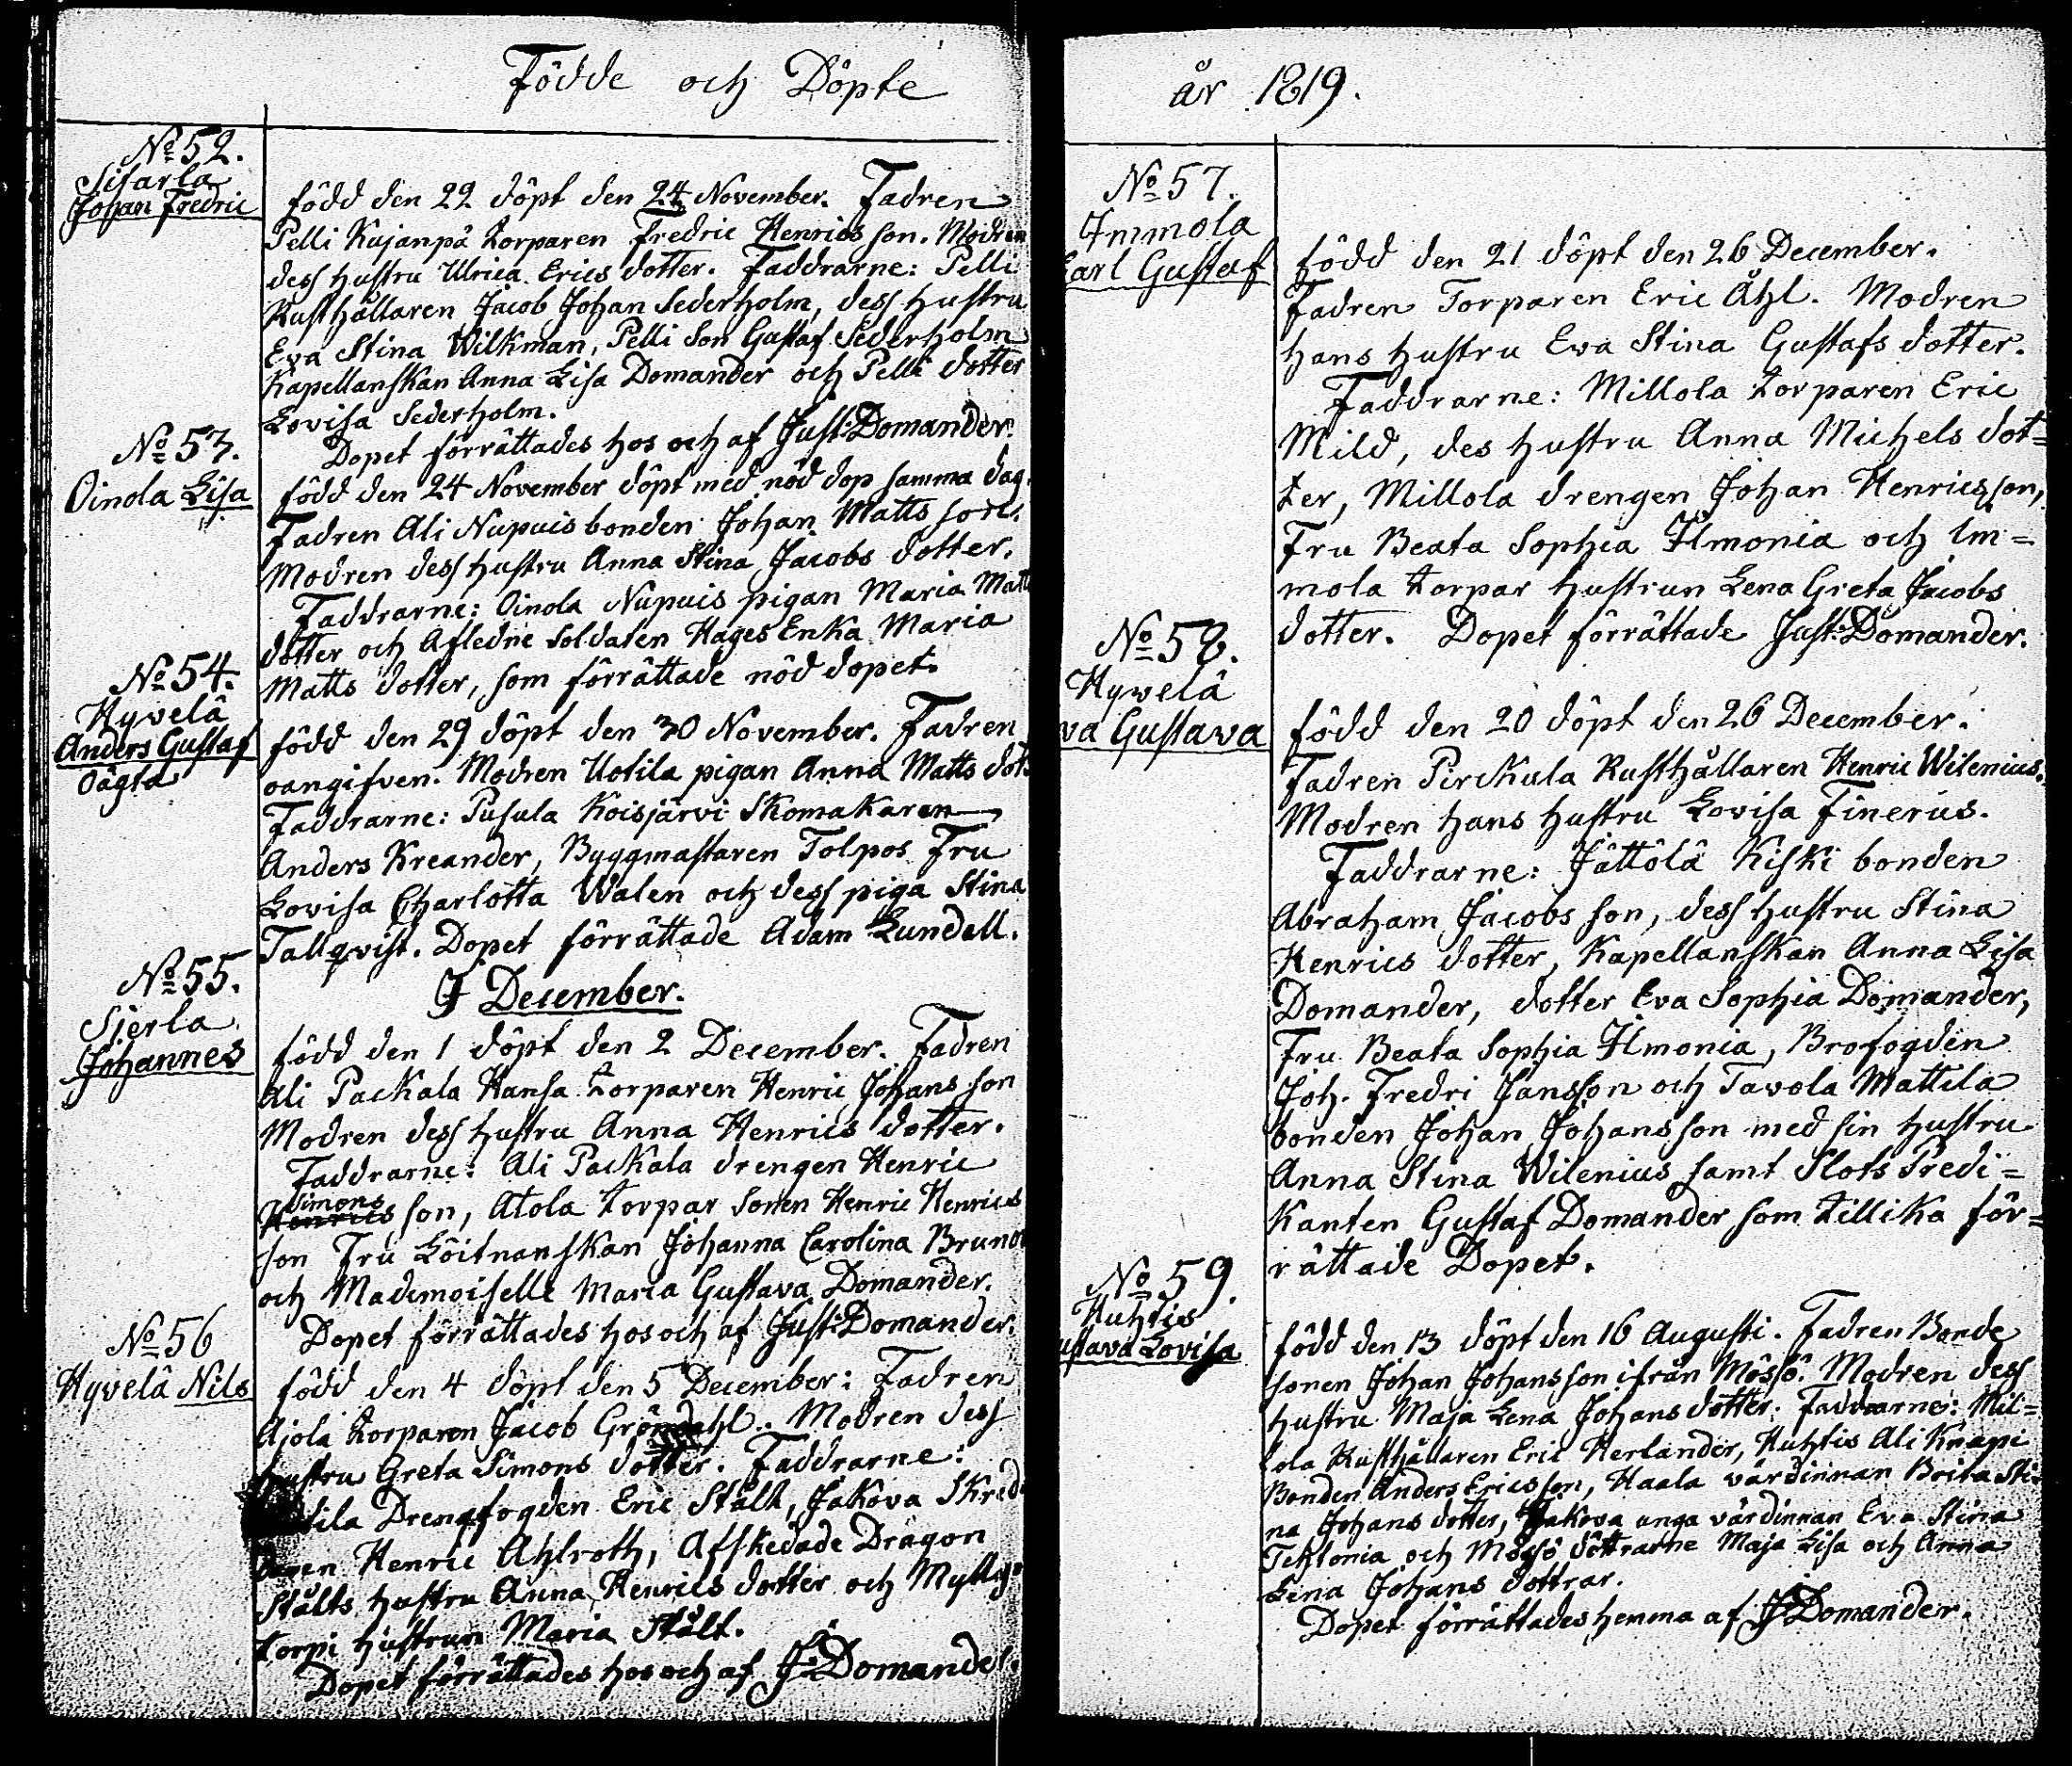 Födde och Döpte
N:o 52.
Sitarla
Johan Fredric
född den 22 döpt den 24 November. Fadren
Pelli Kujanpä torparen Fredric Henrics son. Modren
dess hustru Ulrica Erics dotter. Faddrarne: Pelli
Rusthållaren Jacob Johan Sederholm, dess hustru
Eva Stina Wilkman, Pelli Son Gustaf Sederholm
Kapellanskan Anna Lisa Domander och Pelli dotter
Lovisa Sederholm.
Dopet förrättades hos och af Just: Domander.
N:o 53.
Oinola Lisa
född den 24 November döpt med nöd dop samma dag.
Fadren Ali Nupuis bonden Johan Matts son.
Modren dess hustru Anna Stina Jacobs dotter.
Faddrarne: Oinola Nupuis pigan Maria Matts
dotter och Afledne Soldaten Hages Enka Maria
Matts dotter, som förrättade nöd dopet.
N:o 54.
Hyvelä
Anders Gustaf
oägta
född den 29 döpt den 30 November. Fadren
oangifven. Modren Uotila pigan Anna Matts dot.
Faddrarne: Pusula Koisjärvi Skomakaren
Anders Kreander, Byggmastaren Tolpos Fru
Lovisa Charlotta Walen och dess piga Stina
Tallqvist. Dopet förrättade Adam Lundell.
I December.
N:o 55.
Sjerla
Johannes
född den 1 döpt den 2 December. Fadren
Ali Packala Hansa torparen Henric Johans son
Modren dess hustru Anna Henrics dotter.
Faddrarne: Ali Packala drengen Henric
Simons
Henrics son, Atola torpar sonen Henric Henrics
son Fru Löitnanskan Johanna Carolina Brunou
och Mademoiselle Maria Gustava Domander.
Dopet förrättades hos och af Just: Domander.
N:o 56
Hyvelä Nils
född den 4 döpt den 5 December: Fadren
Ajola torparen Jacob Gröndahl. Modren dess
hustru Greta Simons dotter. Faddrarne:
Drengfogden Eric Stålt, Jakova Skred
Henric Ahlroth, Afskedade Dragon
Stålts hustru Anna Henrics dotter och Mylly
torpi hustrun Maria Stålt.
Dopet förrättades hos och af J: Domander.
år 1819.
N:o 57.
Immola
Carl Gustaf
född den 21 döpt den 26 December.
Fadren Torparen Eric Åhl. Modren
hans hustru Eva Stina Gustafs dotter.
Faddrarne: Millola torparen Eric
Mild, des hustru Anna Michels dot=
ter, Millola drengen Johan Henricsson,
Fru Beata Sophia Ilmonia och Im=
mola torpar hustrun Lena Greta Jacobs
dotter. Dopet förrättade Just: Domander.
N:o 58.
Hyvelä
va Gustava
född den 20 döpt den 26 December.
Fadren Pirckula Rusthållaren Henric Wilenius.
Modren hans hustru Lovisa Finerus.
Faddrarne: Jättölä Kiski bonden
Abraham Jacobs son, dess hustru Stina
Henrics dotter, Kapellanskan Anna Lisa
Domander, dotter Eva Sophia Domander,
Fru Beata Sophia Ilmonia, Brofogden
Joh. Fredri Jansson och Tavola Mattila
bonden Johan Johans son med sin hustru
Anna Stina Wilenius samt Slots Predi=
kanten Gustaf Domander som tillika för=
rättade Dopet.
N:o 59.
Huhtis
ustava Lovisa
född den 13 döpt den 16 Augusti. Fadren Bonde
sonen Johan Johans son ifrån Mössö. Modren dess
hustru Maja Lena Johans dotter. Faddrarne: Mil=
lola Rusthållaren Eric Herlander, Huhtis Ali Knapi
Bonden Anders Ericsson, Haala värdinnan Boita Sti
na Johans dotter, Jakova anga värdinnan Eva Stina
Teklonia och Mössö döttrarne Maja Lisa och Anna
Lena Johans dottrar.
Dopet förrättades hemma af J: Domander.